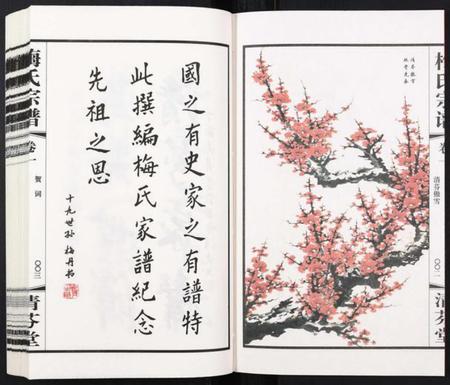 梅氏宗谱
卷一
清芬傲雪
〇〇二
清芬堂
清芬傲雪
國之有史家之有譜特
此撰編梅氏家譜紀念
先祖之恩
十九世孙 梅丹
梅氏宗谱
卷一
贺词
〇〇三
清芬堂